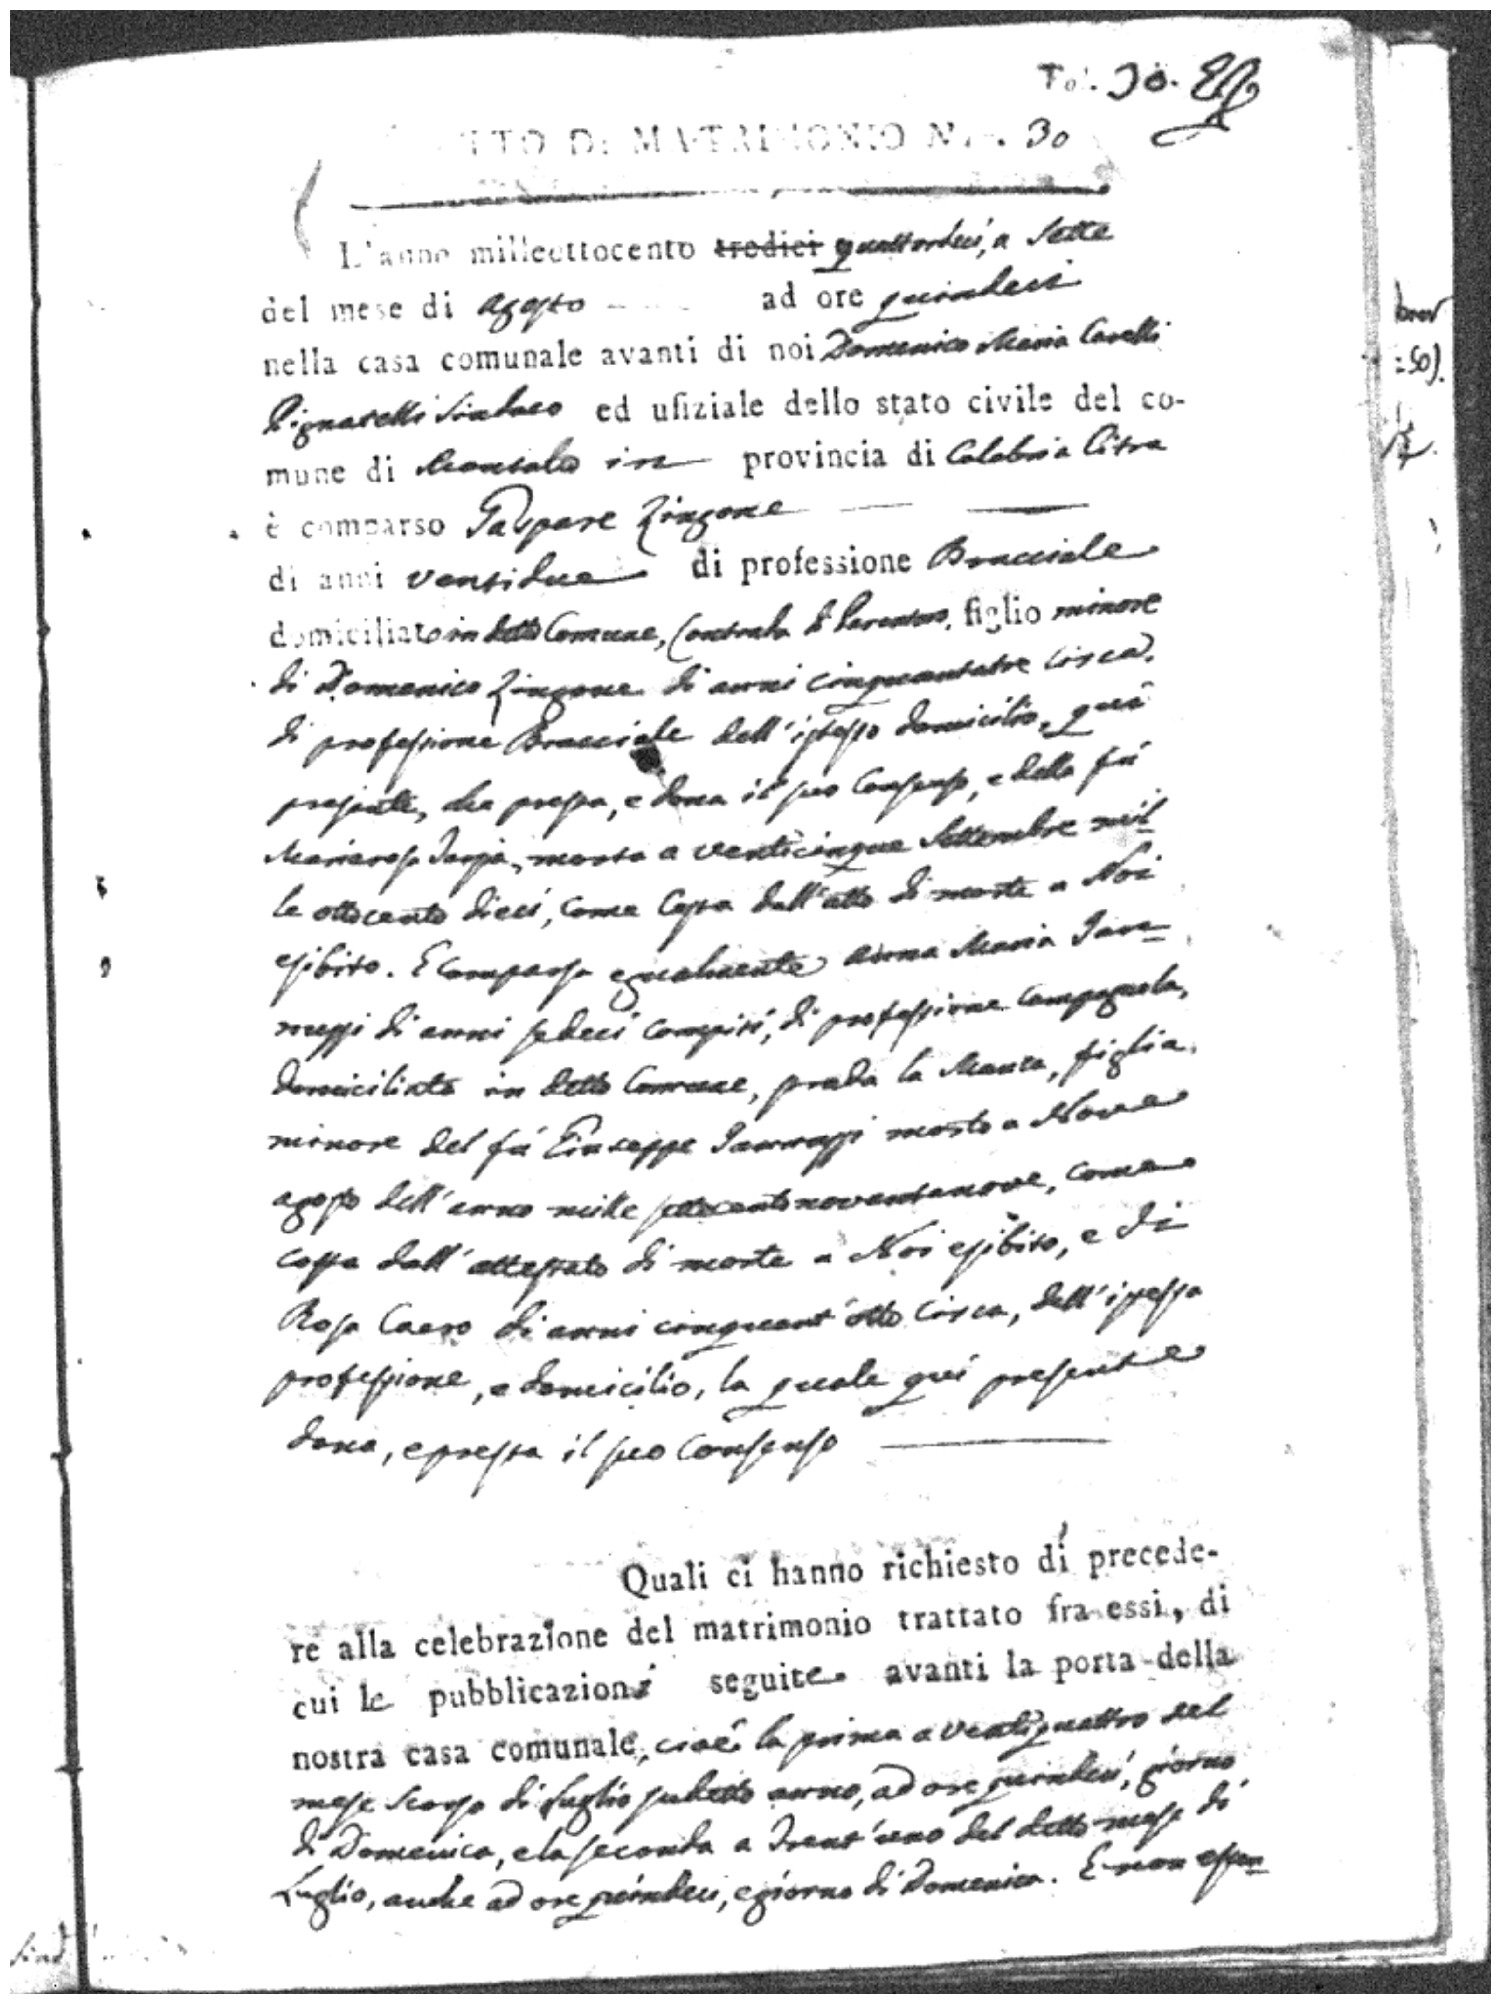 Fol. 30.
ATTO DI MATRIMONIO N. 30
L'anno milleottocento tredici quattordeci, a Sette
del mese di Agosto ad ore quindeci
nella casa comunale avanti di noi Domenico Maria Cavelli
Pignatelli Sindaco ed ufiziale dello stato civile del co-
mune di Montalto in provincia di Calabria Citra
è comparso Gaspare Zingone
di anni ventidue di professione Bracciale
domiciliato in detto Comune, Contrada di figlio minore
di Domenico Zingone di anni cinquantatre circa,
di professione Bracciale dell'istesso domicilio, quì
presente, che presta, e dona il suo Consenso, e della fù
Mariarosa morta a venticinque Settembre mil-
le ottocento dieci, come Costa dall'atto di morte a Noi
esibito. E Comparsa egualmente Anna Maria Ian-
nuzzi di anni sedeci compiti, di professione Campagnola,
domiciliata in detto Comune, strada la Manca, figlia
minore del fù Giuseppe Iannuzzi morto a Nove
agosto dell'anno mille settecentonovantanove, come
costa dall'attestato di morte a Noi esibito, e di
Rosa Caero di anni cinquant'otto circa, dell'istessa
professione, e domicilio, la quale quì presente
dona, e presta il suo Consenso
Quali ci hanno richiesto di precede-
re alla celebrazione del matrimonio trattato fra essi, di
cui le pubblicazioni seguite avanti la porta della
nostra casa comunale, cioè la prima a ventiquattro del
mese scorso di Luglio sudetto anno, ad ore quindeci, giorno
di Domenica, e la seconda a Trent'uno del detto mese di
Luglio, anche ad ore quindeci, e giorno di Domenica. E non essen-